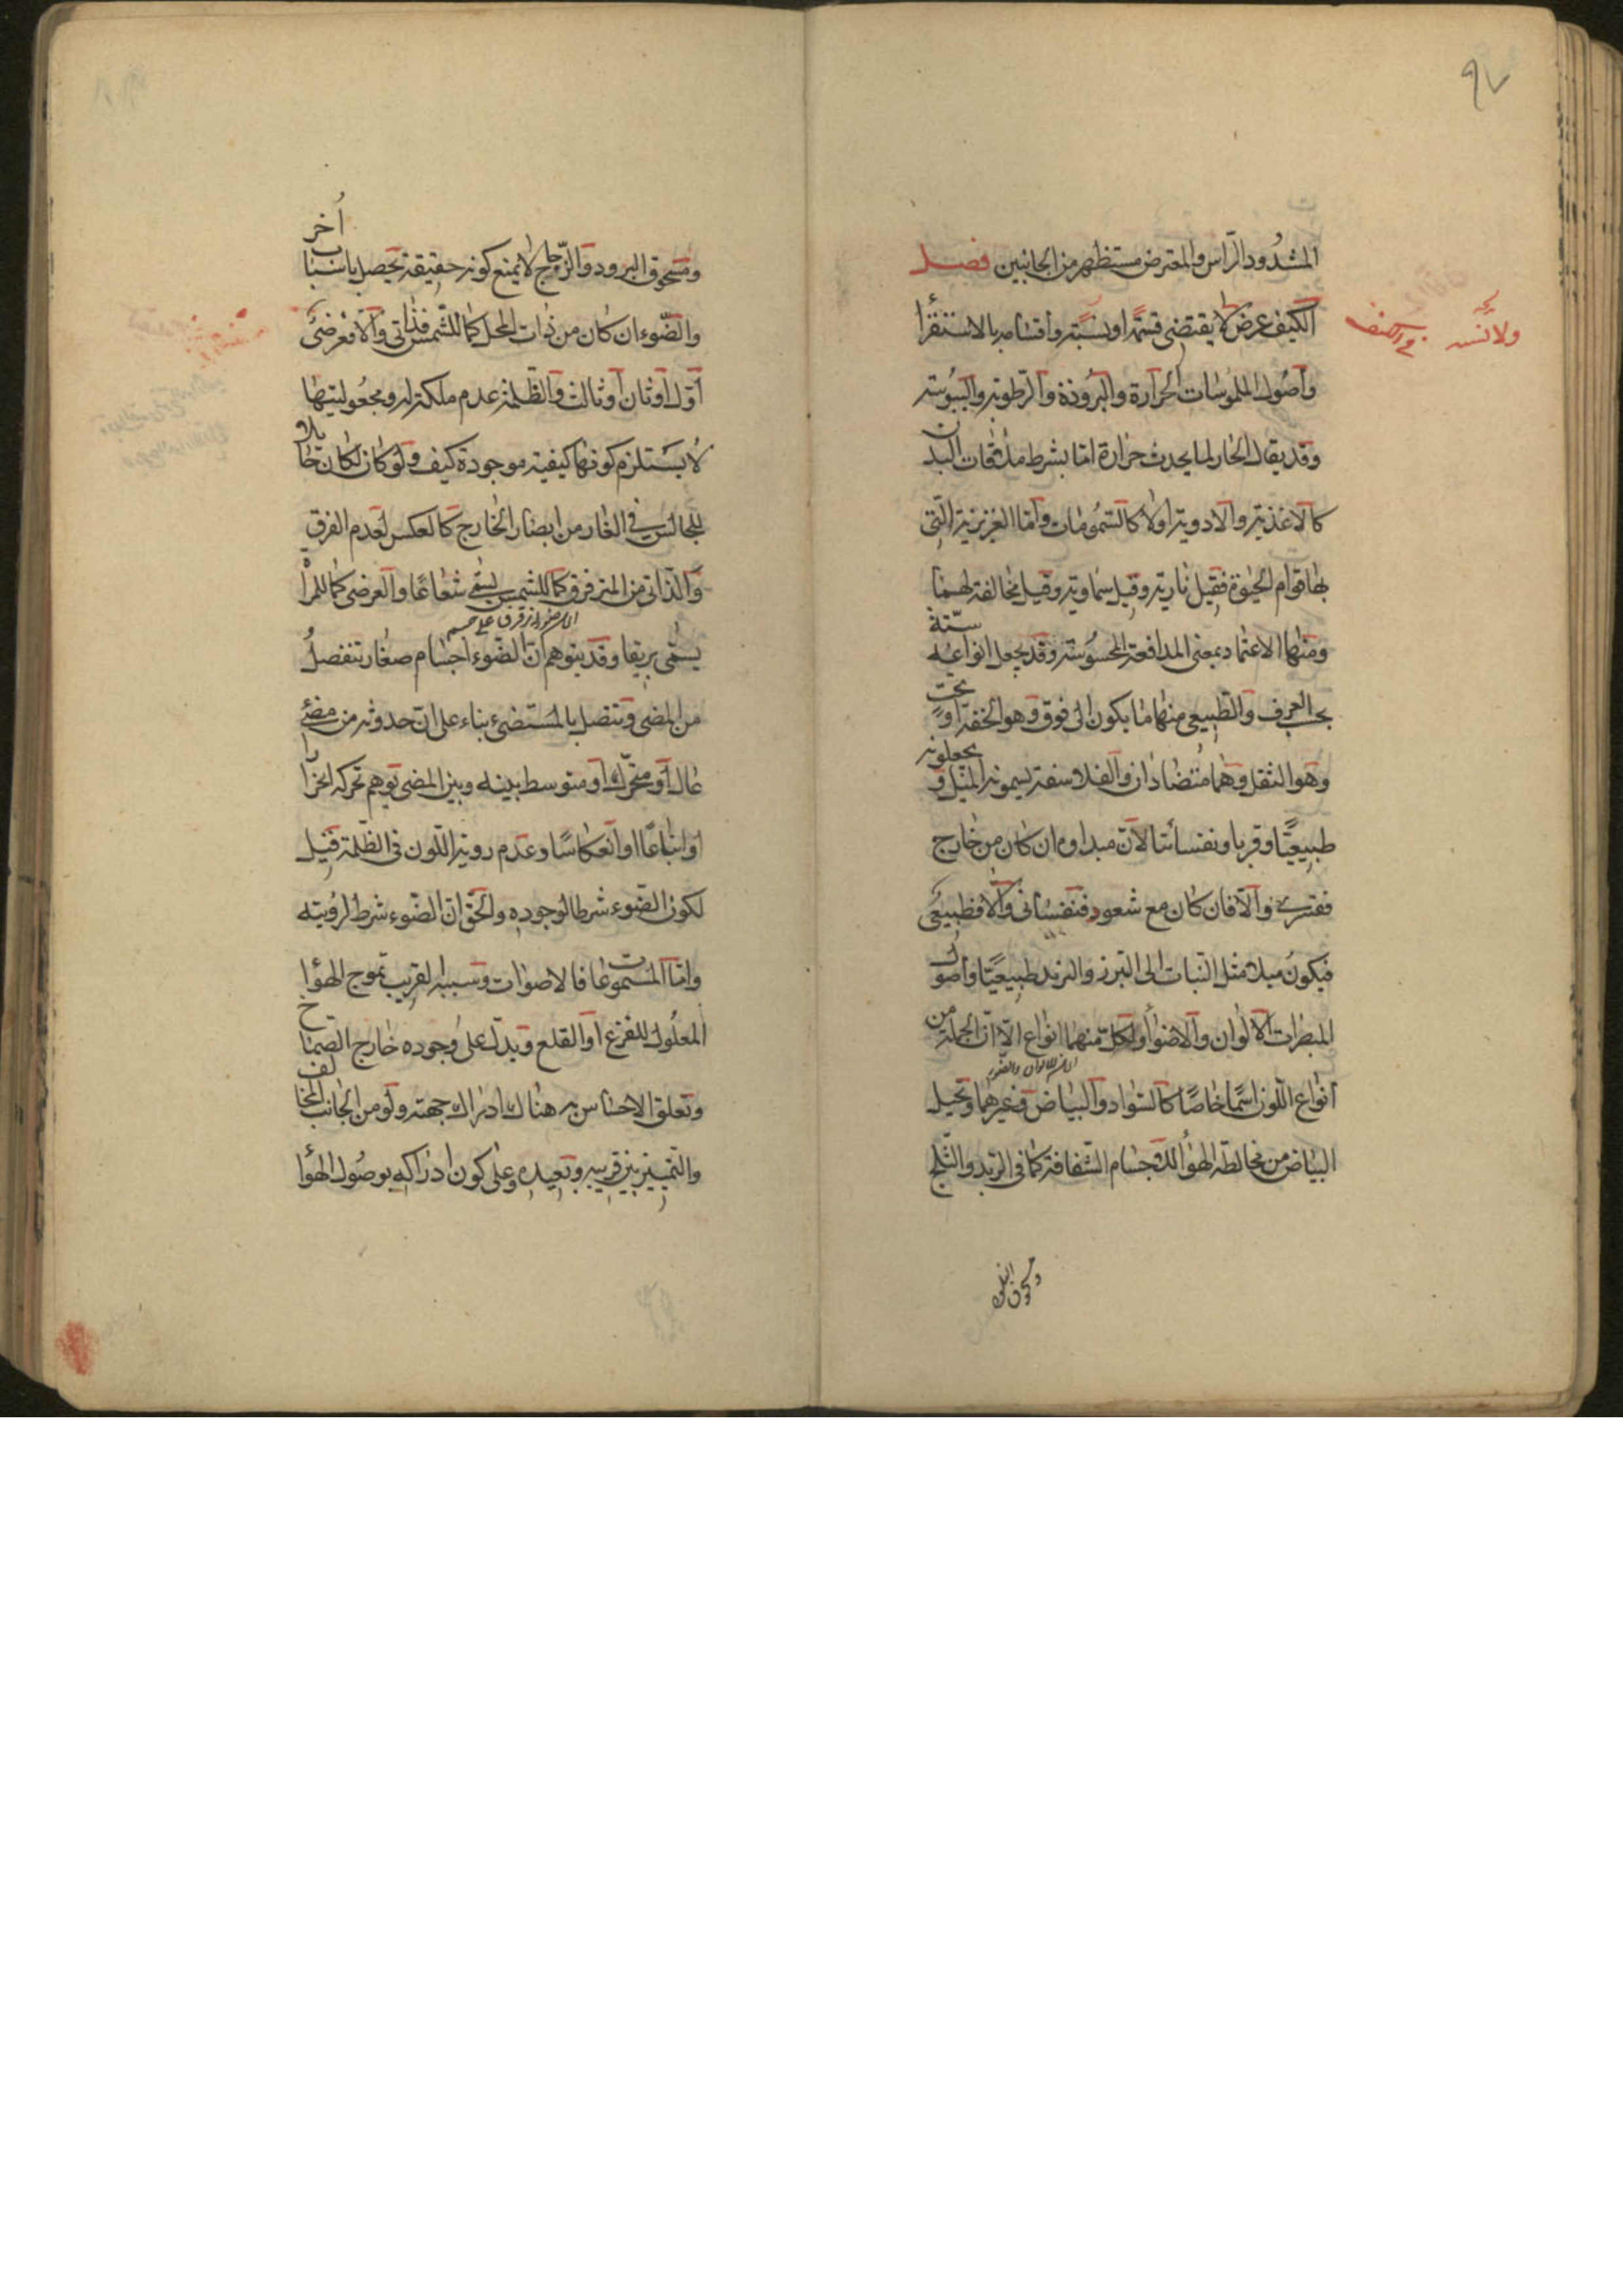 ٩٧
المشدود الراس والمعترض مستظهر من الجانبين فصل
الكيف عرض لا يقتضى قسمة او نسبة واقسامه بالاستقرا
واصول الملموسات الحرارة والبرودة والرطوبة واليبوسة
وقد يقال الحار لما يحدث حرارة اما بشرط ملاقات البدن
كالاغذية والادوية اولا كالسمومات واما الغريزية التى
بها قوام الحيوة فقيل نارية وقيل سماوية وقيل مخالفة لهما
ومنها الاعتماد بمعنى المدافعة المحسوسة وقد يجعل انواعه ستة
بحسب العرف والطبيعى منها ما يكون الى فوق وهو الخفة او تحت
وهو الثقل وهما متضادان والفلاسفة يسمونه الميل و يجعلونه
طبيعيا وقريا ونفسانيا لان مبداوه ان كان من خارج
فقسرى والا فان كان مع شعور فنفسانى والا فطبيعى
فيكون ميل مثل النبات الى التبرز والتزيد طبيعيا واصول
المبصرات الالوان والاضواء ولكل منهما انواع الا ان الجملة من
انواع اللون اسما خاصا كالسواد والبياض وغيرهما وتخيل
البياض من مخالطة الهواء للاجسام الشفافة كما فى الزبد والثلج
ومسحوق البلور
ومسحوق البرود والزجاج لا يمنع كونه حقيقة تحصل باسباب أخر
والضوء ان كان من ذات المحل كما للشمس فذاتى والا فعرضى
اول او ثان او ثالث والظلمة عدم ملكة له ومجعوليتها
لا يستلزم كونها كيفية موجودة كيف ولو كان لكان حايلا
للجالس فى الغار من ابصار الخارج كالعكس لعدم الفرق
والذاتى من المترقرق كما للشمس يسمى شعاعا والعرضى كما للمراة
يسمى بريقا وقد يتوهم ان الضوء اجسام صغار تنفصل
من المضى وتتصل بالمستضىء بناء على ان حدوثه من مضئ
عال او متحرك او متوسط بينه وبين المضى توهم تحركه انحدارا
او اتباعا او انعكاسا وعدم روية اللون فى الظلمة قيل
لكون الضوء شرطا لوجوده والحق ان الضوء شرط لرؤيته
واما المسموعات فالاصوات وسببه القريب تموج الهواء
المعلول للقرع او القلع ويدل على وجوده خارج الصماخ
وتعلق الاحساس به هناك ادراك جهته ولو من الجانب المخالف
والتمييز بين قريبه وبعيده وعلى كون ادراكه بوصول الهواء